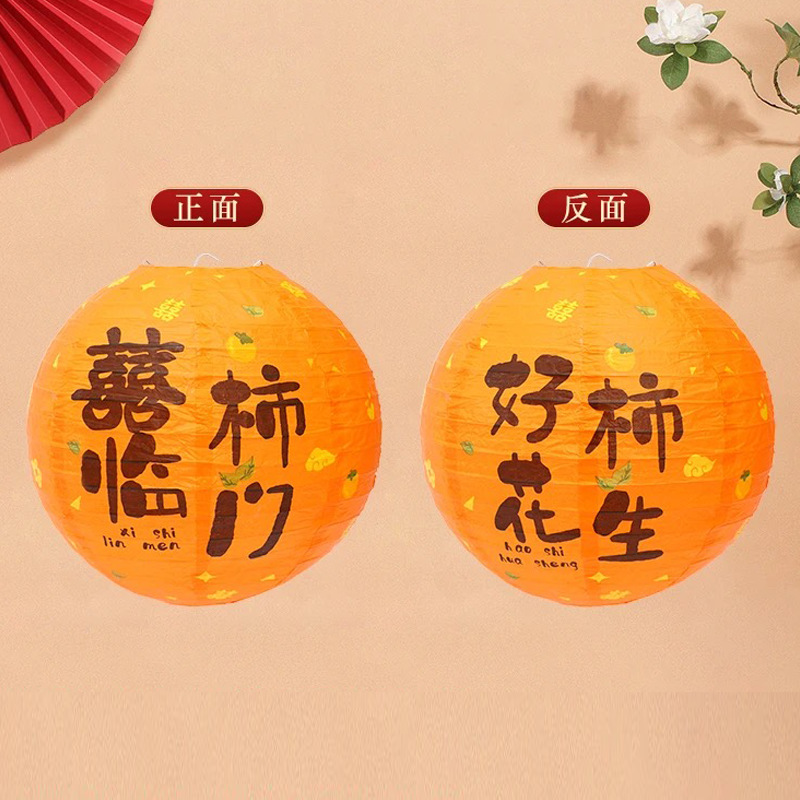 正面
囍柿
临门
xi shi
lin men
反面
好柿
花生
hao shi
hua sheng